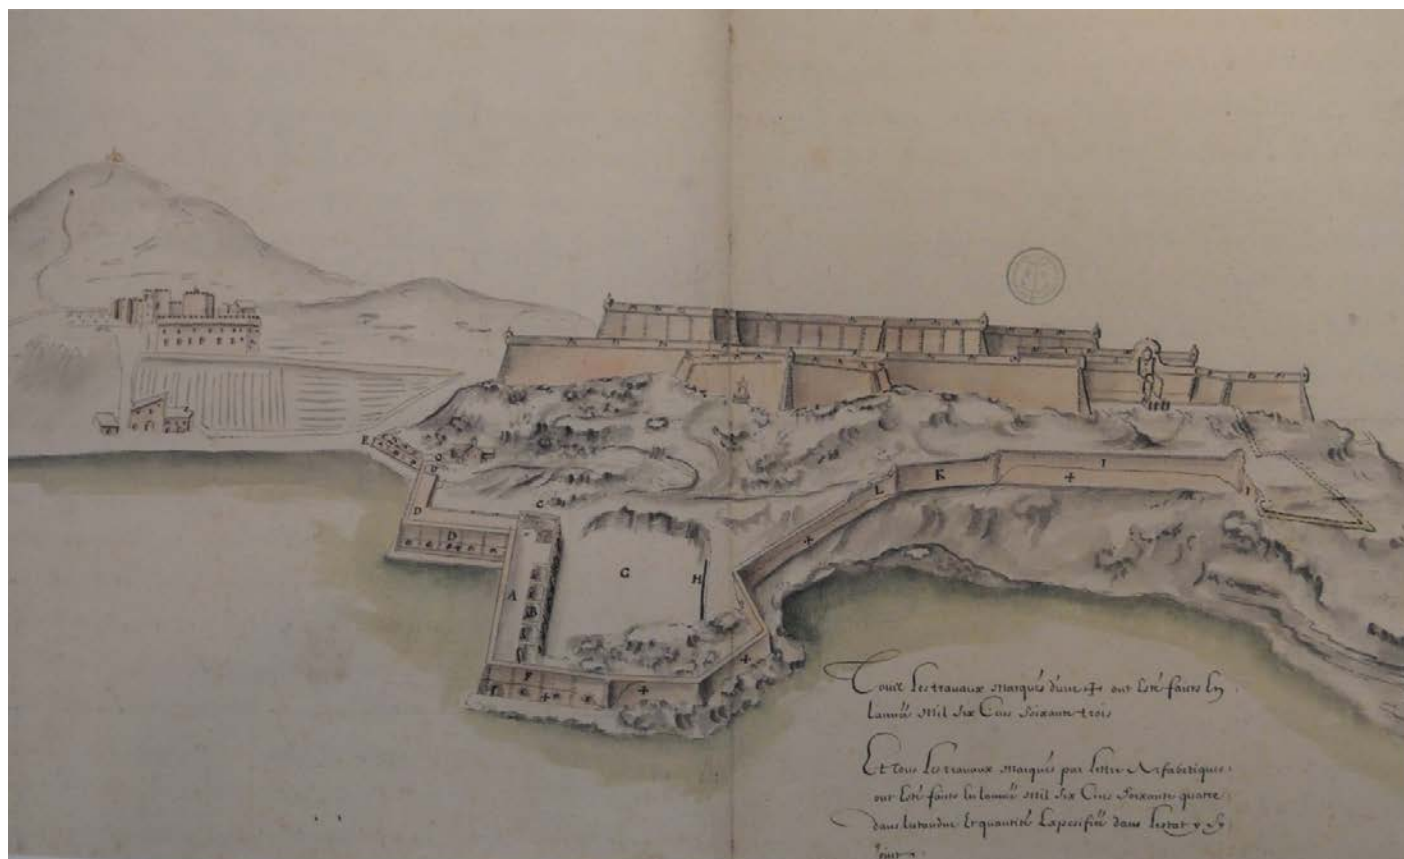 I
✝
K
L
E
O
D
C
D
D
✝
G
H
A
B
✝
F
✝
✝
Tous Les travaux marqués dune ✝ ont Esté faits En
Lannée Mil Six Cens Soixante trois
Et tous Les travaux marqués par lettre Arfabetiques
ont Esté faits En lannée Mil Six Cens Soixante quatre
dans Et quantité dans lestat y Cy
Joint